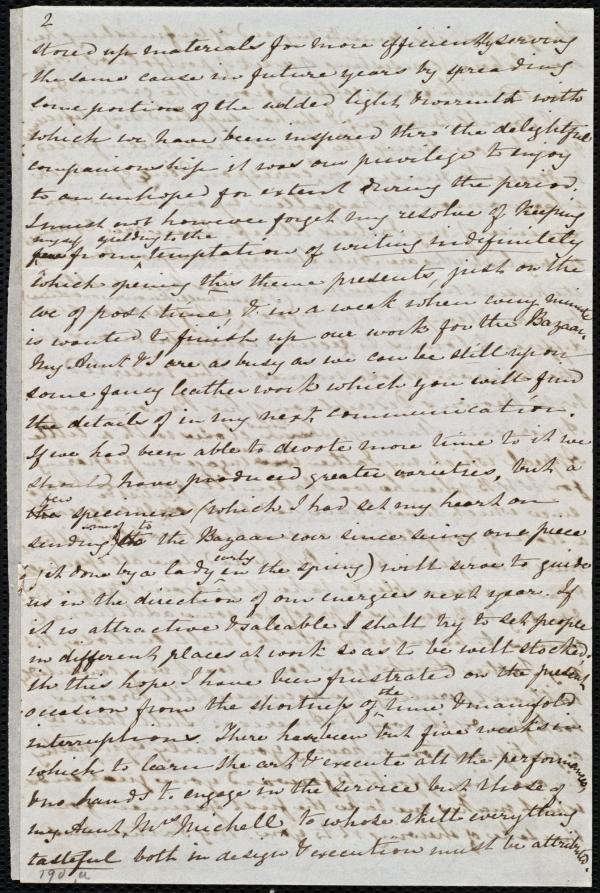 2
stored up materials for more efficiently serving
the same cause in future years by spreading
some portion of the added light & warmth with
which we have been inspired thro the delightful
companionship it was our privilege to enjoy
to an unhoped for extent during the period.
I must not however forget my resolve of keeping
myself yielding to the
from temptation of writing indefinitely
which opening this theme presents, just on the
eve of post time, & in a week when every minute
is wanted to finish up our work for the Bazaar.
My Aunt & I are as busy as we can be still upon
some fancy leather work which you will find
the details of in my next communication.
If we had been able to devote more time to it we
should have produced greater varieties, but a
few
the specimens (which I had set my heart on
some of to
sending the Bazaar ever since seeing one piece
early
of it done by a lady in the spring) will serve to guide
us in the direction of our energies next year. If
it is attractive & saleable I shall try to set people
in different places at work so as to be well stocked.
In this hope I have been frustrated on the present
occasion from the shortness of the time & manifold
interruptions. There has been but five weeks in
which to learn the art & execute all the performances
& no hands to engage in the service but those of
my Aunt, Mrs Michell to whose skill everything
tasteful both in design & execution must be attributed.